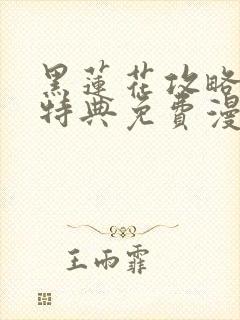 黑蓮花攻略
特典免費漫
王雨霏